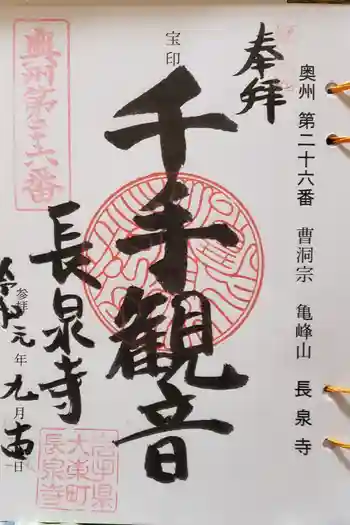 奥州 第二十六番 曹洞宗 亀峰山 長泉寺
奉拝
宝印
千手観音
奥州第二十六番
長泉寺
参拝
元年九月 日
岩手県
大東町
長泉寺